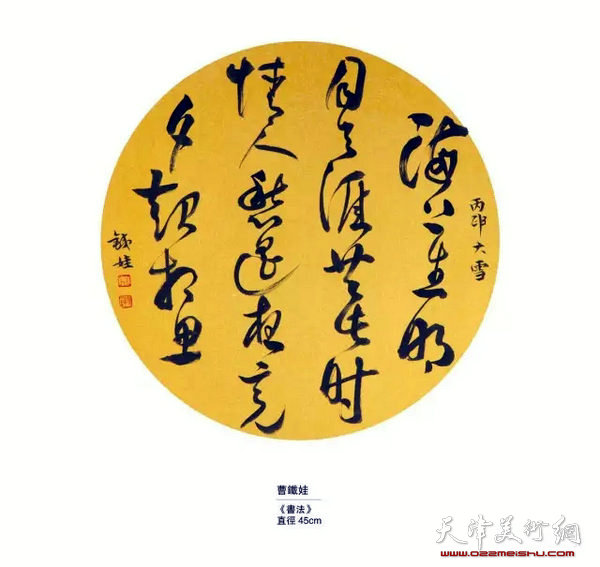 丙申大雪
海上生明
月天涯共此时
情人怨遥夜竟
夕起相思
鐵娃
曹鐵娃
《書法》
直徑 45cm
天津美術網
www.022meishu.com